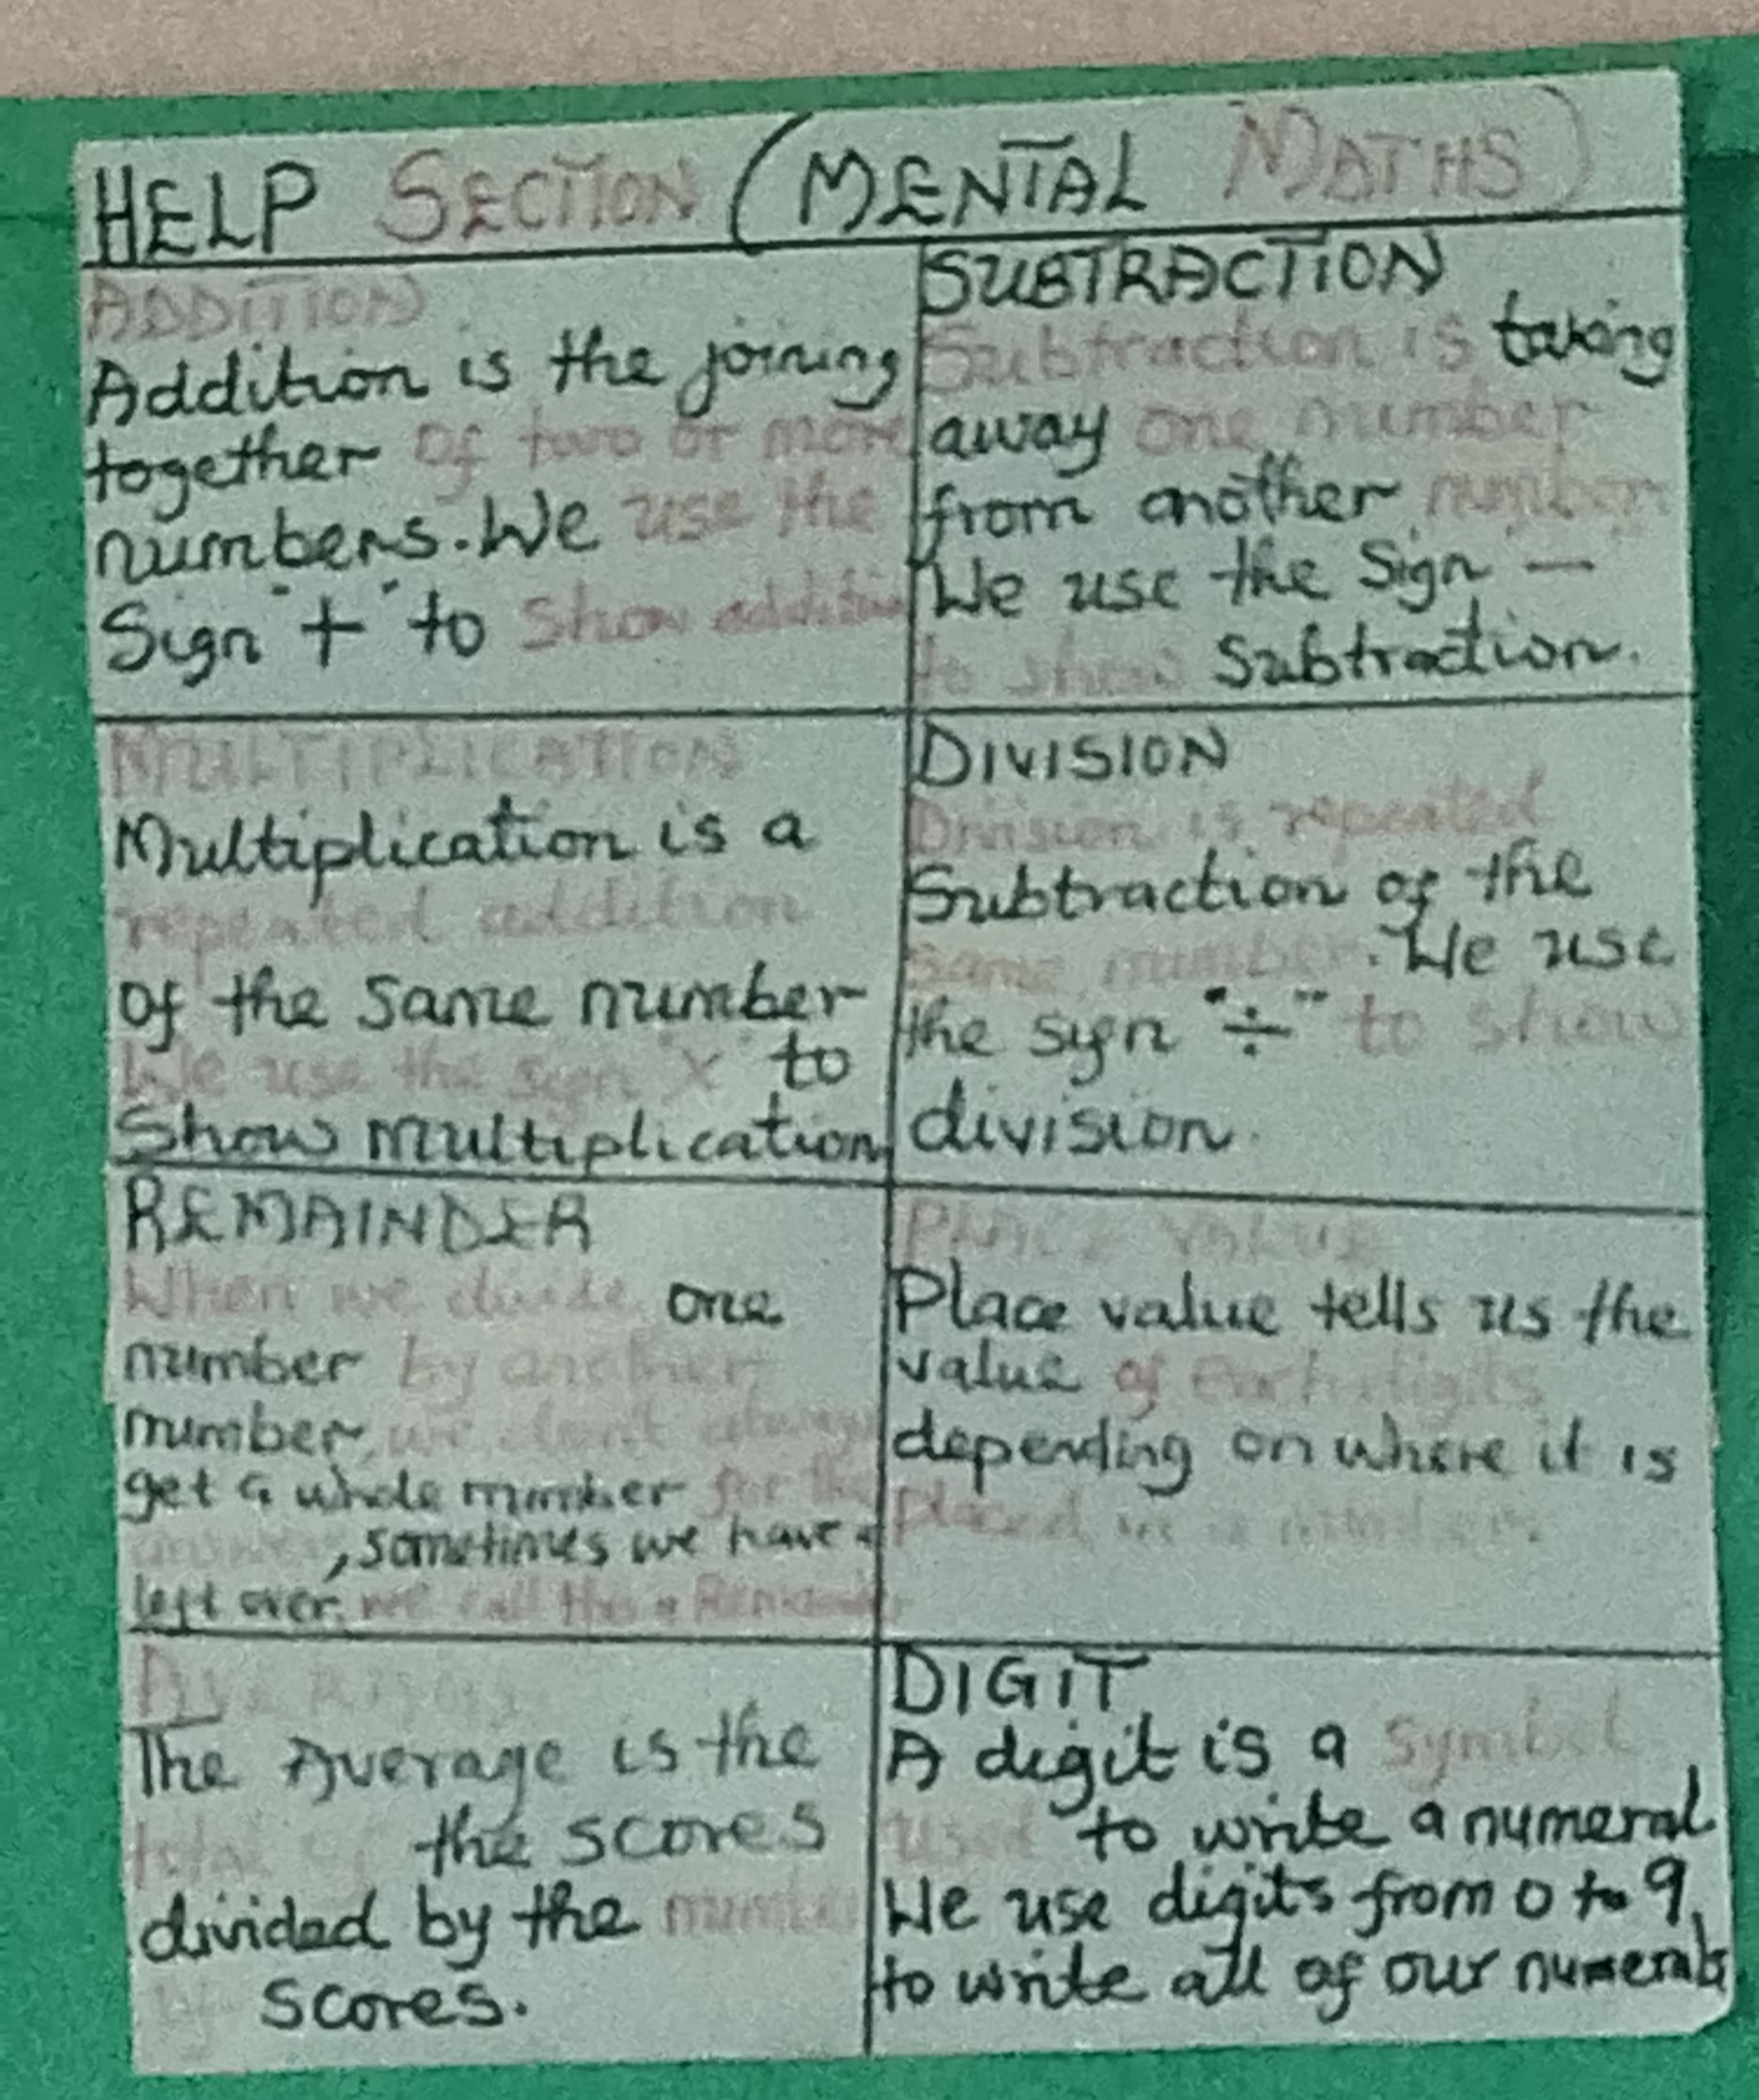 HELP SECTION (MENTAL MATHS)
ADDITION
Addition is the joining
together of two or more
numbers. We use the
Sign "+" to show addition
SUBTRACTION
Subtraction is taking
away one number
from another number
We use the Sign —
to show Subtraction.
MULTIPLICATION
Multiplication is a
repeated addition
of the same number
We use the sign "X" to
Show multiplication
DIVISION
Division is repeated
Subtraction of the
same number. We use
the sign "÷" to show
division.
REMAINDER
When we divide one
number by another
number, we don't always
get a whole number for the
answer, sometimes we have a
left over. we call this a Remainder
PLACE VALUE
Place value tells us the
value of each digits
depending on where it is
placed in a number.
AVERAGE
The Average is the
total of the scores
divided by the number
of scores.
DIGIT
A digit is a symbol
used to write a numeral
We use digits from 0 to 9
to write all of our numerals